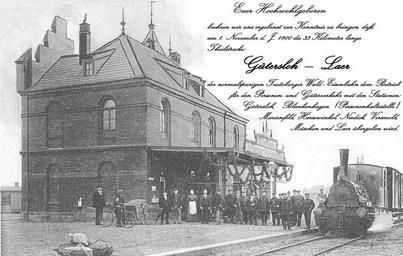 Euer Hochwohlgeboren
beehren wir uns ergebenst zur Kenntnis zu bringen, daß
am 1. November d. J. 1900 die 53 Kilometer lange
Theilstrecke
Gütersloh – Laer
der normalspurigen Teutoburger Wald-Eisenbahn dem Betrieb
für den Personen- und Güterverkehr mit den Stationen:
Gütersloh, Blankenhagen (Personenhaltestelle),
Marienfeld, Harsewinkel, Niedick, Versmold,
und Laer übergeben wird.